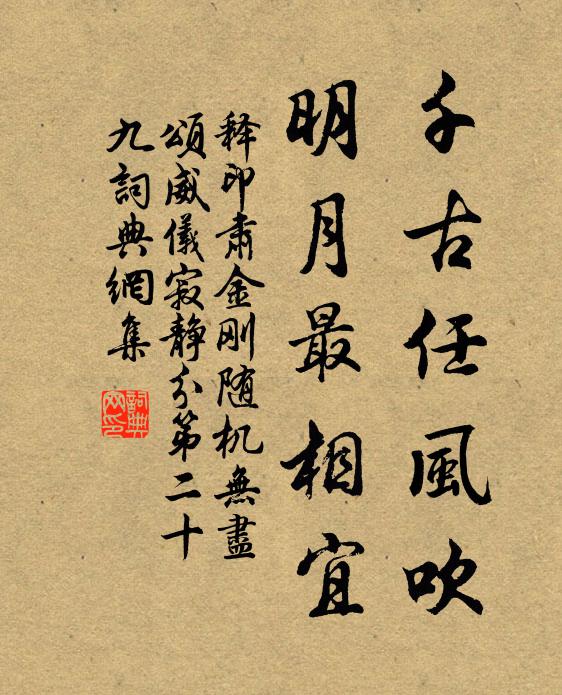 千古任風吹
明月最相宜
釋印肅金刚随机無盡
頌威儀寂静分第二十
九詞典網集
詞典
网印